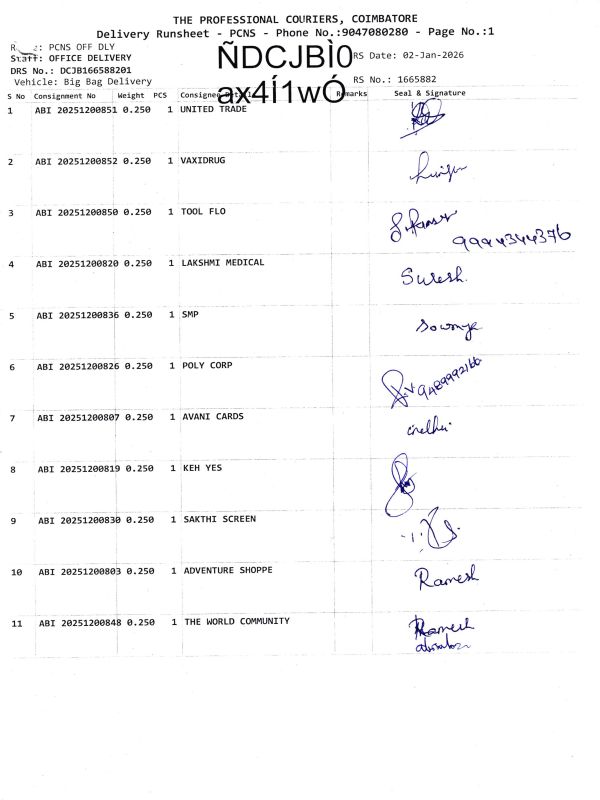 THE PROFESSIONAL COURIERS, COIMBATORE
Delivery Runsheet - PCNS - Phone No.:9047080280 - Page No.:1
PCNS OFF DLY
Staff: OFFICE DELIVERY
DRS No.: DCJB166588201
Vehicle: Big Bag Delivery
ÑDCJBÌ0
ax4Í1wÓ
RS Date: 02-Jan-2026
RS No.: 1665882
S No Consignment No Weight PCS Consignee Details Remarks Seal & Signature
1 ABI 20251200851 0.250 1 UNITED TRADE
2 ABI 20251200852 0.250 1 VAXIDRUG
3 ABI 20251200850 0.250 1 TOOL FLO
9994344376
4 ABI 20251200820 0.250 1 LAKSHMI MEDICAL Suresh.
5 ABI 20251200836 0.250 1 SMP Sowmya
6 ABI 20251200826 0.250 1 POLY CORP
7 ABI 20251200807 0.250 1 AVANI CARDS
8 ABI 20251200819 0.250 1 KEH YES
9 ABI 20251200830 0.250 1 SAKTHI SCREEN
10 ABI 20251200803 0.250 1 ADVENTURE SHOPPE Ramesh
11 ABI 20251200848 0.250 1 THE WORLD COMMUNITY Ramesh